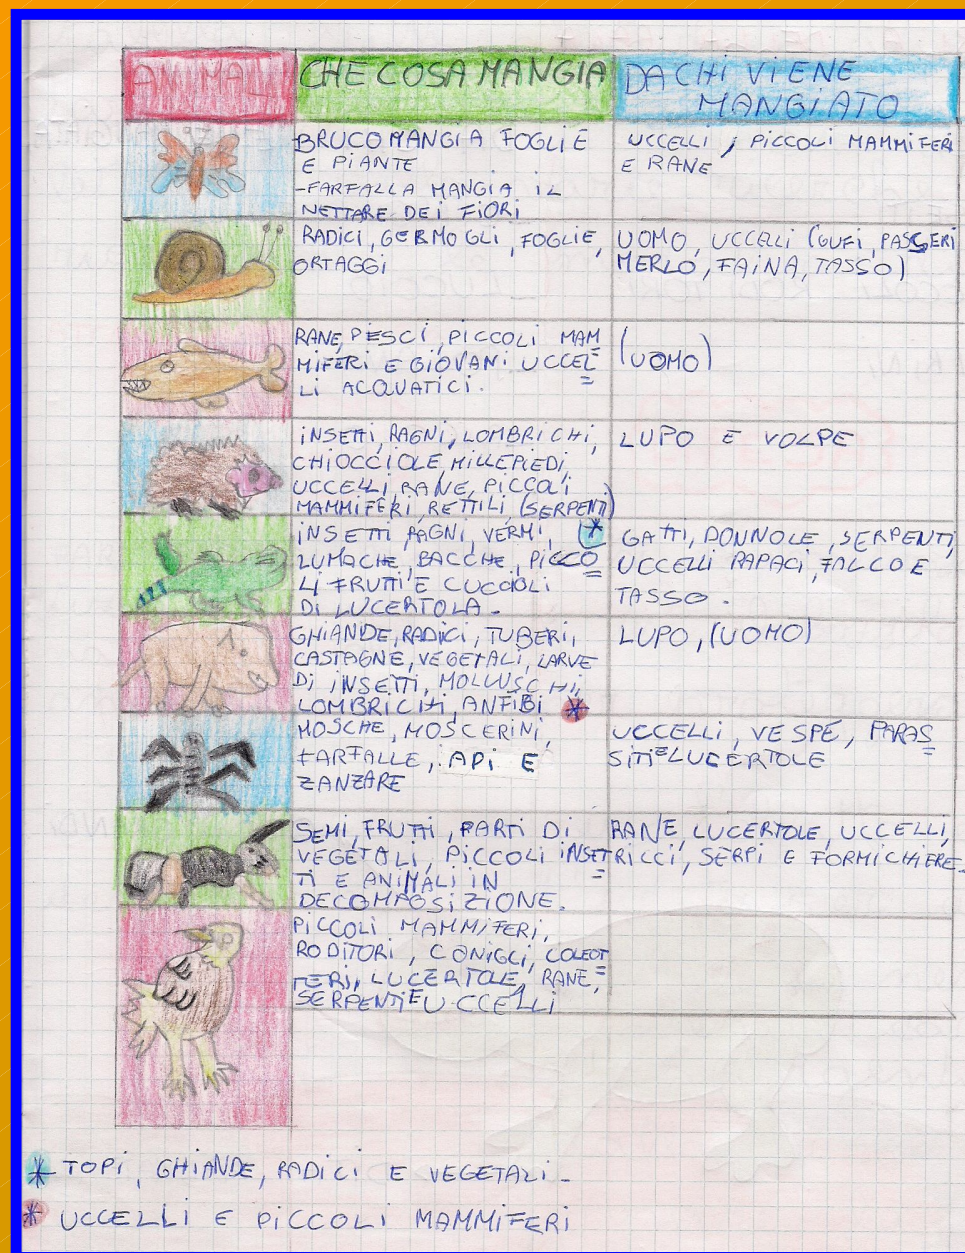 ANIMALI CHE COSA MANGIA DA CHI VIENE
MANGIATO
BRUCO MANGIA FOGLIE
E PIANTE
-FARFALLA MANGIA IL
NETTARE DEI FIORI
UCCELLI, PICCOLI MAMMIFERI
E RANE
RADICI, GERMOGLI, FOGLIE,
ORTAGGI
UOMO, UCCELLI (GUFI, PASSERI
MERLO, FAINA, TASSO)
RANE, PESCI, PICCOLI MAM=
MIFERI E GIOVANI UCCEL=
LI ACQUATICI.
(UOMO)
INSETTI, RAGNI, LOMBRICHI,
CHIOCCIOLE, MILLEPIEDI,
UCCELLI, RANE, PICCOLI
MAMMIFERI RETTILI (SERPENTI)
LUPO E VOLPE
INSETTI, RAGNI, VERMI, *
LUMACHE, BACCHE, PICCO=
LI FRUTTI E CUCCIOLI
DI LUCERTOLA.
GATTI, DONNOLE, SERPENTI,
UCCELLI RAPACI, FALCO E
TASSO.
GHIANDE, RADICI, TUBERI,
CASTAGNE, VEGETALI, LARVE
DI INSETTI, MOLLUSCHI,
LOMBRICHI, ANFIBI *
LUPO, (UOMO)
MOSCHE, MOSCERINI,
FARFALLE, API E
ZANZARE
UCCELLI, VESPE, PARAS=
SITI E LUCERTOLE
SEMI, FRUTTI, PARTI DI
VEGETALI, PICCOLI INSET=
TI E ANIMALI IN
DECOMPOSIZIONE.
RANE, LUCERTOLE, UCCELLI,
RICCI, SERPI E FORMICHIERE.
PICCOLI MAMMIFERI,
RODITORI, CONIGLI, COLEOT=
TERI, LUCERTOLE, RANE,
SERPENTI E UCCELLI
* TOPI, GHIANDE, RADICI E VEGETALI.
* UCCELLI E PICCOLI MAMMIFERI